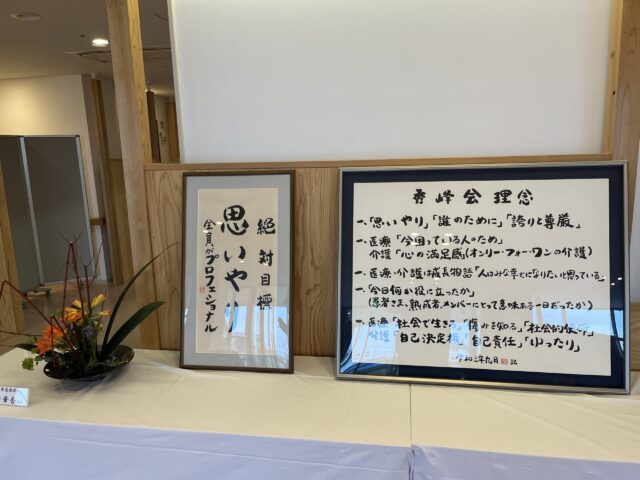 絶対目標
思いやり
全員がプロフェショナル
秀峰会 理念
一、「思いやり」「誰のために」「誇りと尊厳」
一、医療「今困っている人のため」
介護「心の満足感」(オンリー・フォー・ワンの介護)
一、医療・介護は成長物語「人はみな幸せになりたいと思っている」
一、「今日何か役に立ったか」
(患者さま、熟成者、メンバーにとって意味ある一日だったか)
一、医療「社会で生きる」「痛みを知る」「社会的使命」
介護「自己決定権」「自己責任」「ゆったり」
令和三年九月 記